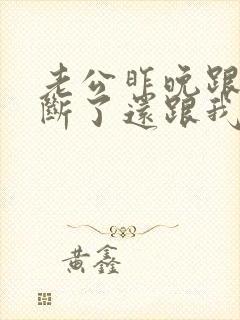 老公昨晚跟
斷了還跟我
黃鑫